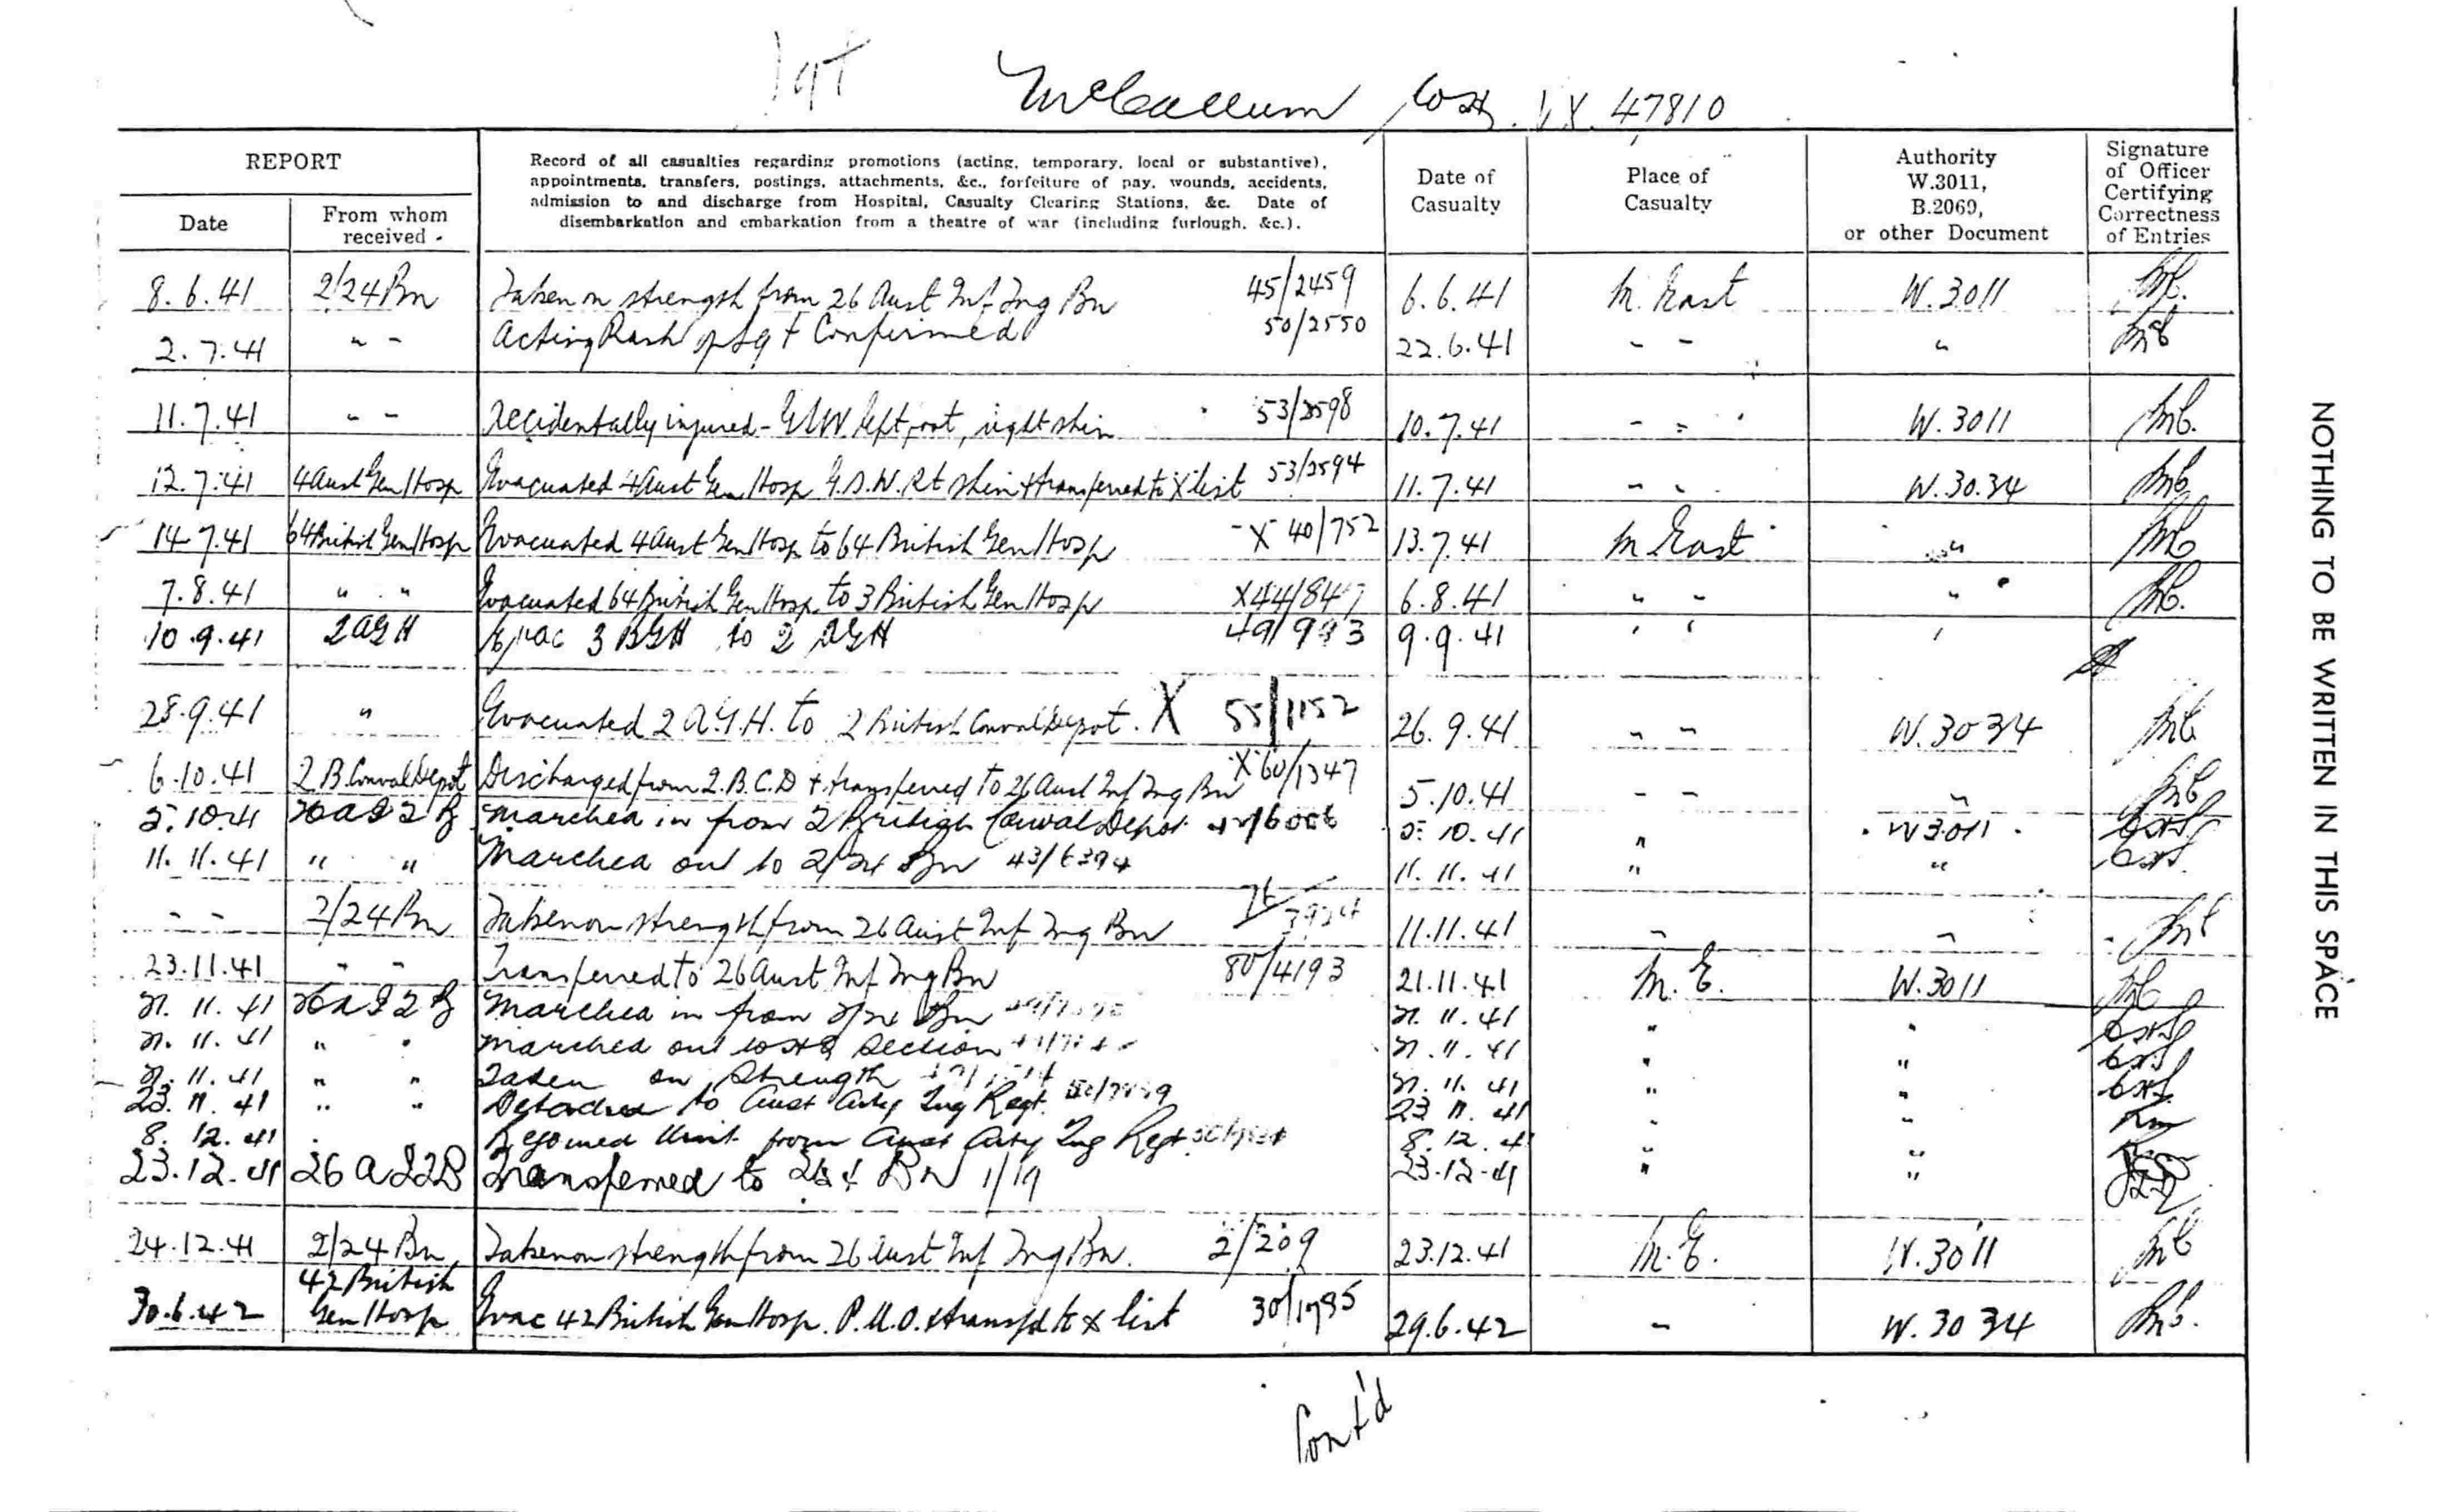 Sgt McCallum VX. 47810
REPORT
Date
From whom received
Record of all casualties regarding promotions (acting, temporary, local or substantive),
appointments, transfers, postings, attachments, &c., forfeiture of pay, wounds, accidents,
admission to and discharge from Hospital, Casualty Clearing Stations, &c. Date of
disembarkation and embarkation from a theatre of war (including furlough, &c.).
Date of Casualty
Place of Casualty
Authority W.3011, B.2069, or other Document
Signature of Officer Certifying Correctness of Entries
8.6.41 2/24 Bn Taken on strength from 26 Aust Inf Trg Bn 45/2459 6.6.41 M. East W.3011
2.7.41 " " Acting Rank of Sgt Confirmed 50/2550 22.6.41 " " "
11.7.41 " " Accidentally injured - left foot, right shin 53/2598 10.7.41 " " W.3011
12.7.41 4 Aust Gen Hosp Evacuated 4 Aust Gen Hosp G.S.W. Rt shin & transferred to X list 53/2594 11.7.41 " " W.3034
14.7.41 64 British Gen Hosp Evacuated 4 Aust Gen Hosp to 64 British Gen Hosp X 40/752 13.7.41 M East "
7.8.41 " " Evacuated 64 British Gen Hosp to 3 British Gen Hosp X44/847 6.8.41 " " "
10.9.41 2 AGH Evac 3 BGH to 2 AGH 49/993 9.9.41 " " "
28.9.41 " Evacuated 2 A.G.H. to 2 British Conval Depot. X 55/1152 26.9.41 " " W.3034
6.10.41 2 B. Conval Depot Discharged from 2.B.C.D & transferred to 26 Aust Inf Trg Bn X60/1347 5.10.41 " " "
5.10.41 26 A I T B Marched in from 2 British Conval Depot 5.10.41 " W3011
11.11.41 " " Marched out to 2/24 Bn 43/6394 11.11.41 " "
" " 2/24 Bn Taken on strength from 26 Aust Inf Trg Bn 76/3924 11.11.41 " "
23.11.41 " " Transferred to 26 Aust Inf Trg Bn 80/4193 21.11.41 M.E. W.3011
21.11.41 26 A I T B Marched in from 2/24 Bn 21.11.41 " "
21.11.41 " " Marched out to Section 21.11.41 " "
21.11.41 " " Taken on Strength 21.11.41 " "
23.11.41 " " Detached to Aust Arty Trg Regt. 23.11.41 " "
8.12.41 Rejoined Unit from Aust Arty Trg Regt 8.12.41 " "
23.12.41 26 A I T B Transferred to 2/24 BN 1/19 23.12.41 " "
24.12.41 2/24 Bn Taken on strength from 26 Aust Inf Trg Bn. 2/209 23.12.41 M.E. W.3011
30.6.42 42 British Gen Hosp Evac 42 British Gen Hosp. P.U.O. & transfd to X list 30/1795 29.6.42 " W.3034
Cont'd
NOTHING TO BE WRITTEN IN THIS SPACE